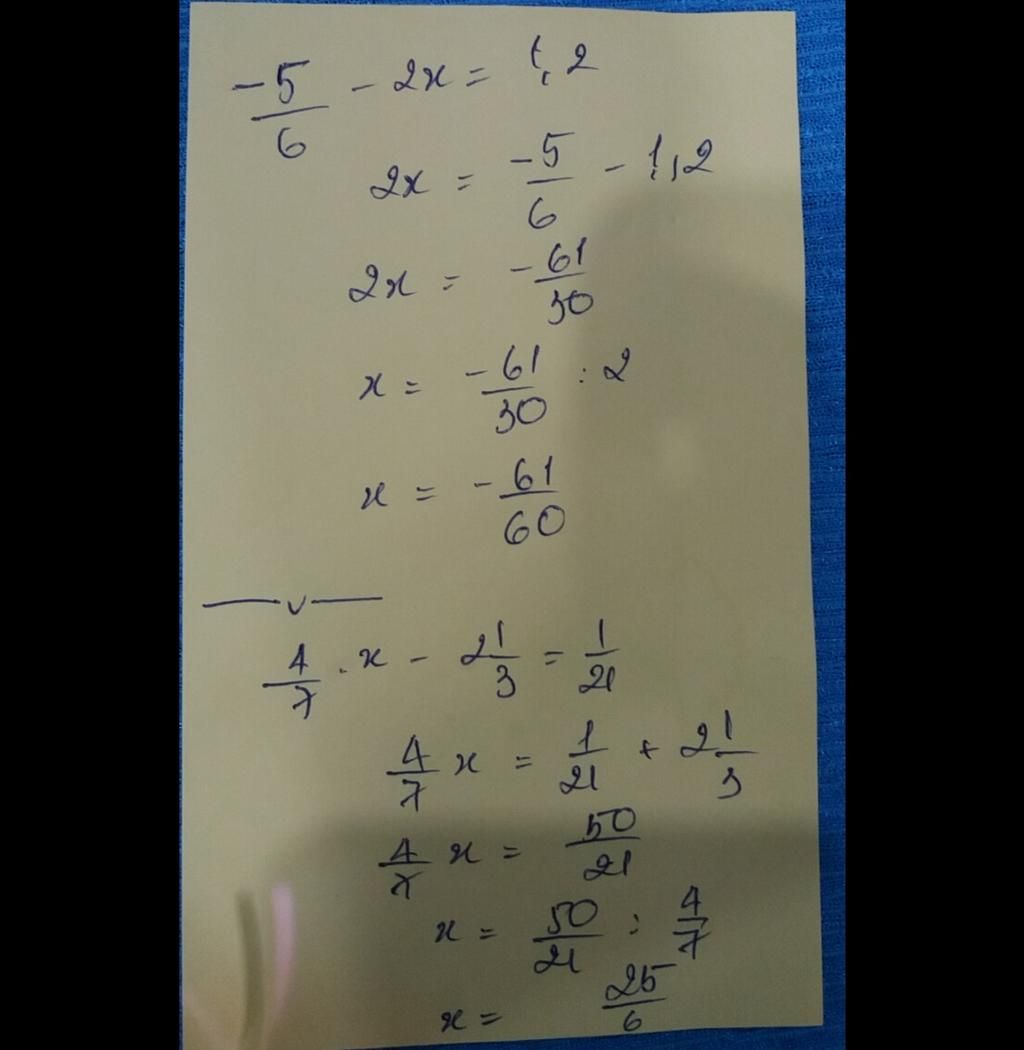 -5/6 - 2x = 1,2
2x = -5/6 - 1,2
2x = -61/30
x = -61/30 : 2
x = -61/60
4/7 . x - 2 1/3 = 1/21
4/7 x = 1/21 + 2 1/3
4/7 x = 50/21
x = 50/21 : 4/7
x = 25/6